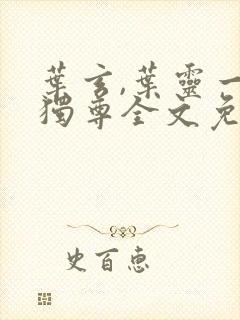 葉玄,葉靈一
獨尊全文免
史百惠